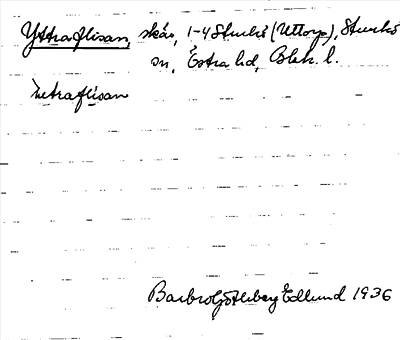 Yttraflisan, skär, 1-4 Sturkö (Uttorp), Sturkö
sn, Östra hd, Blek. l.
Barbro Götheberg Edlund 1936